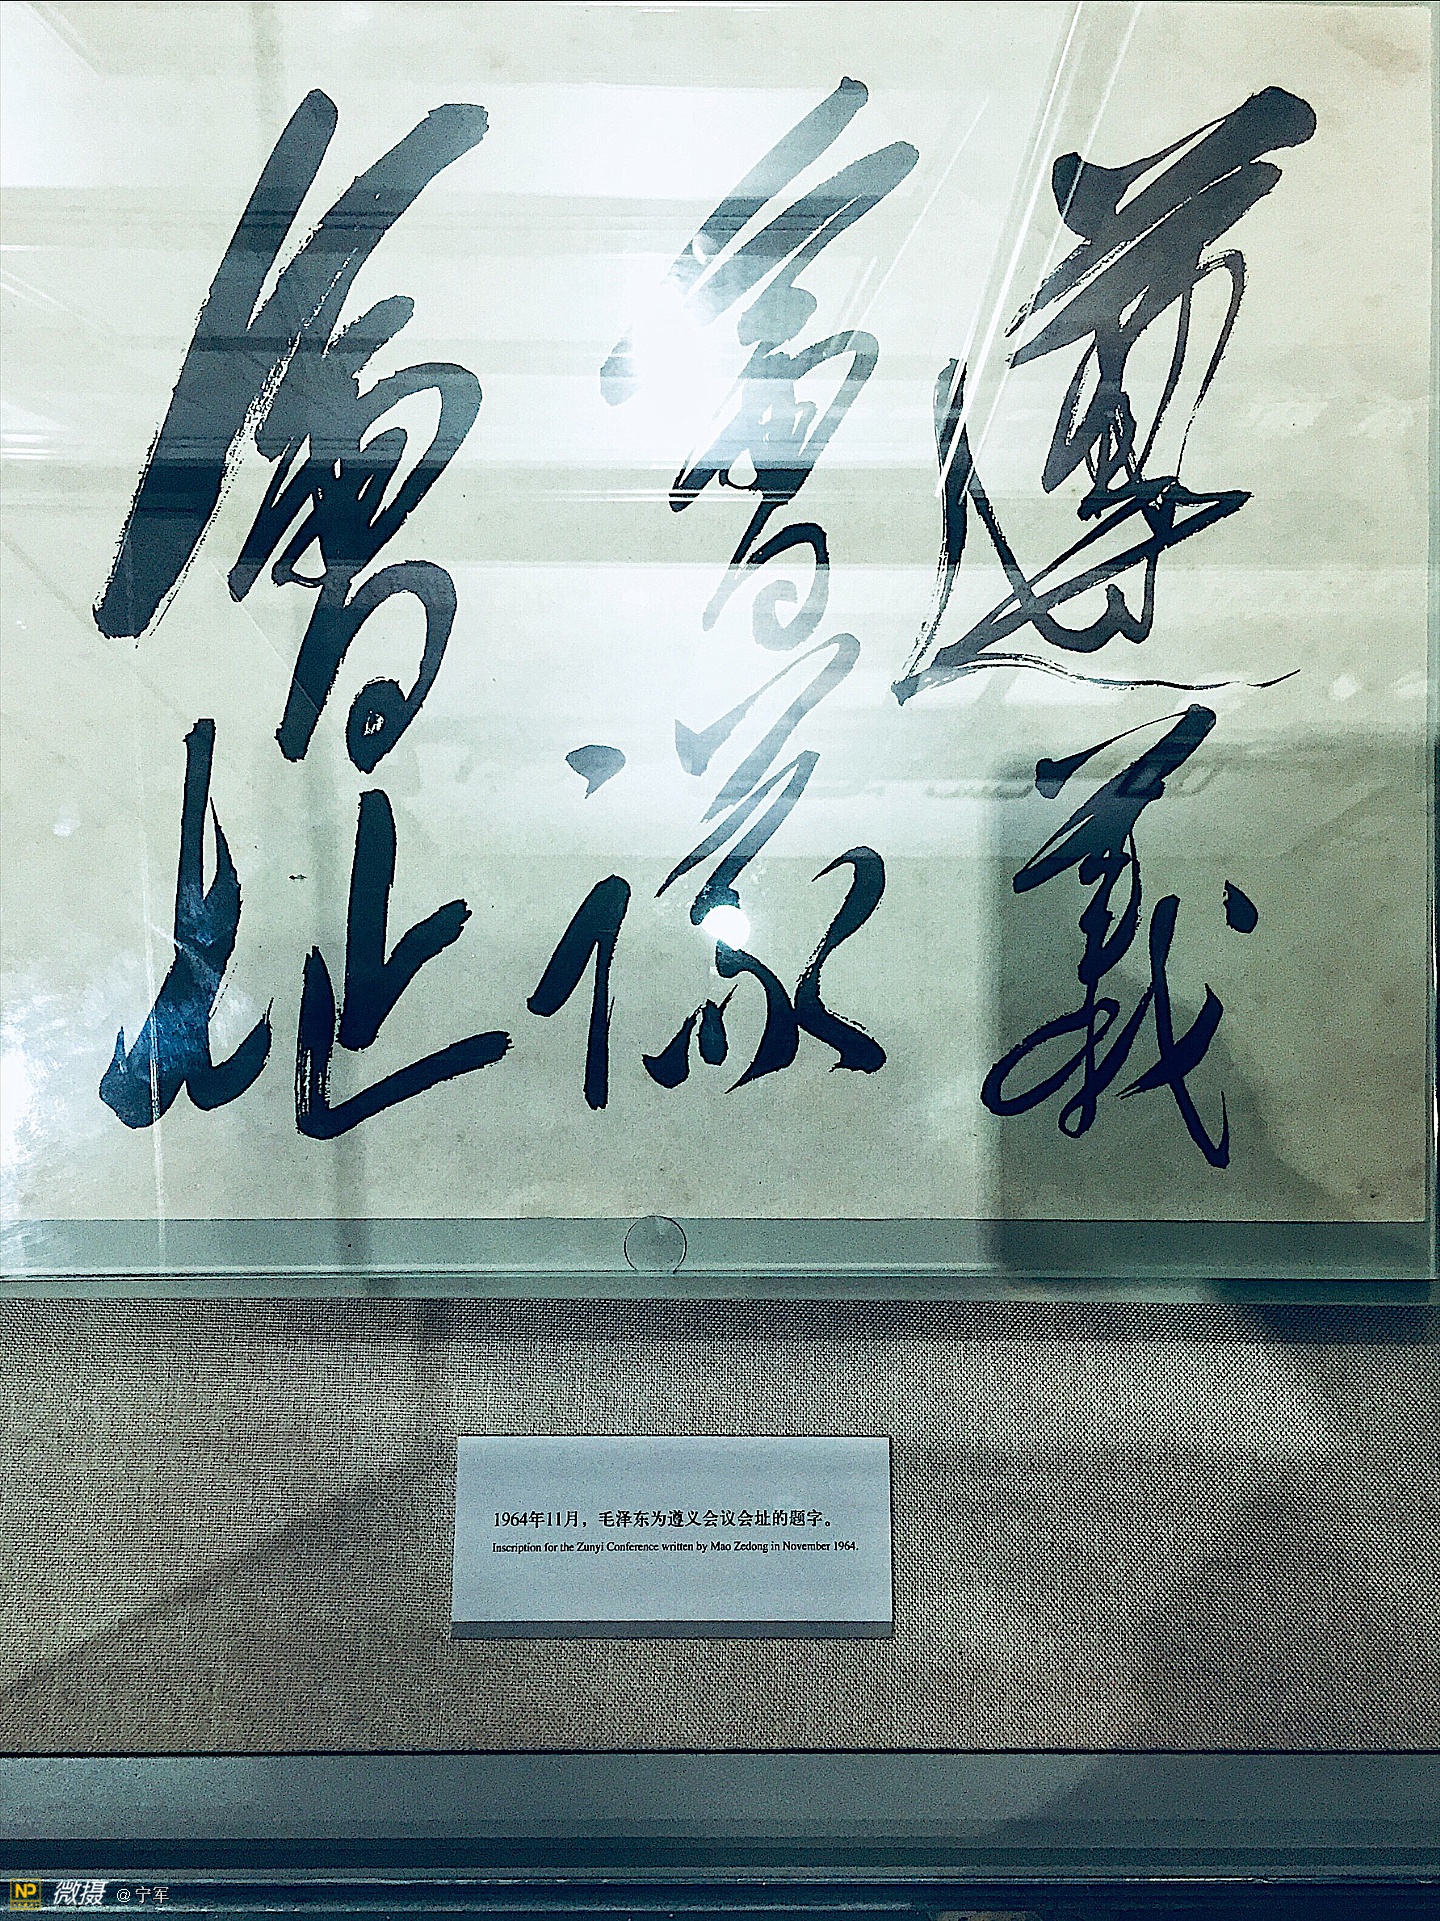 遵義
會議
會址
1964年11月，毛泽东为遵义会议会址的题字。
Inscription for the Zunyi Conference written by Mao Zedong in November 1964.
NP 微摄 @宁军